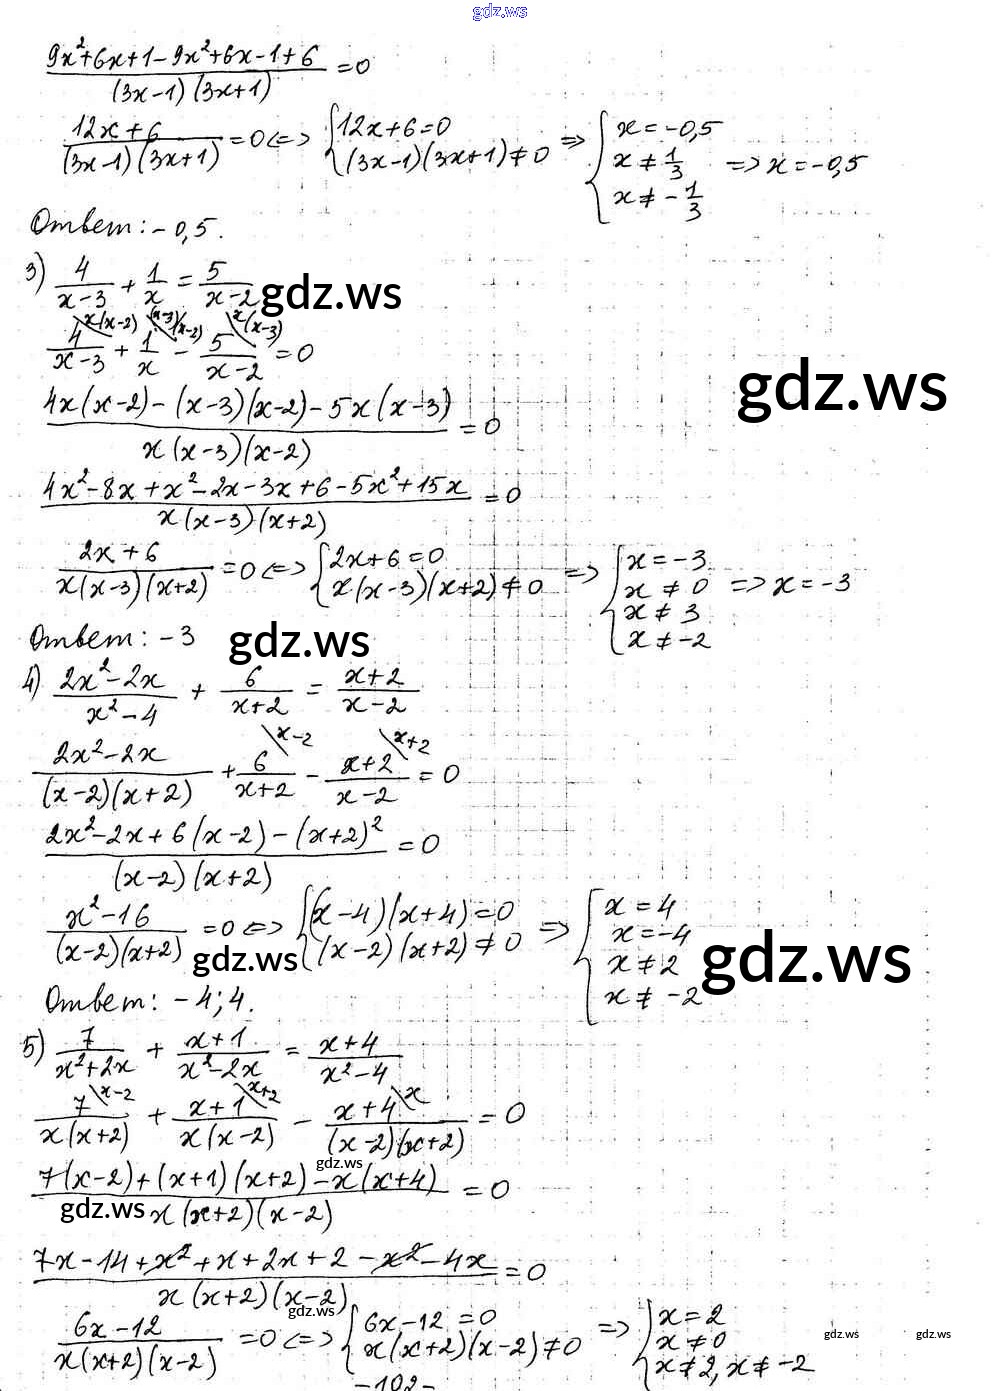 gdz.ws
(9x²+6x+1-9x²+6x-1+6)/((3x-1)(3x+1)) =0
(12x+6)/((3x-1)(3x+1)) =0 <=> {12x+6=0 (3x-1)(3x+1)≠0 => {x=-0,5 x≠1/3 x≠-1/3 => x=-0,5
Ответ: -0,5.
3) 4/(x-3) + 1/x = 5/(x-2) gdz.ws
4/(x-3) \x(x-2) + 1/x \(x-3)(x-2) - 5/(x-2) \x(x-3) =0
gdz.ws
(4x(x-2)-(x-3)(x-2)-5x(x-3))/(x(x-3)(x-2)) =0
(4x²-8x+x²-2x-3x+6-5x²+15x)/(x(x-3)(x+2)) =0
(2x+6)/(x(x-3)(x+2)) =0 <=> {2x+6=0 x(x-3)(x+2)≠0 => {x=-3 x≠0 x≠3 x≠-2 => x=-3
Ответ: -3 gdz.ws
4) (2x²-2x)/(x²-4) + 6/(x+2) = (x+2)/(x-2)
(2x²-2x)/((x-2)(x+2)) + 6/(x+2) \x-2 - (x+2)/(x-2) \x+2 =0
(2x²-2x+6(x-2)-(x+2)²)/((x-2)(x+2)) =0
(x²-16)/((x-2)(x+2)) =0 <=> {(x-4)(x+4)=0 (x-2)(x+2)≠0 => {x=4 x=-4 x≠2 x≠-2
gdz.ws gdz.ws
Ответ: -4; 4.
5) 7/(x²+2x) + (x+1)/(x²-2x) = (x+4)/(x²-4)
7/(x(x+2)) \x-2 + (x+1)/(x(x-2)) \x+2 - (x+4)/((x-2)(x+2)) \x =0
gdz.ws
(7(x-2)+(x+1)(x+2)-x(x+4))/(x(x+2)(x-2)) =0
gdz.ws
(7x-14+x²+x+2x+2-x²-4x)/(x(x+2)(x-2)) =0
gdz.ws
(6x-12)/(x(x+2)(x-2)) =0 <=> {6x-12=0 x(x+2)(x-2)≠0 => {x=2 x≠0 x≠2, x≠-2
gdz.ws gdz.ws
-102-